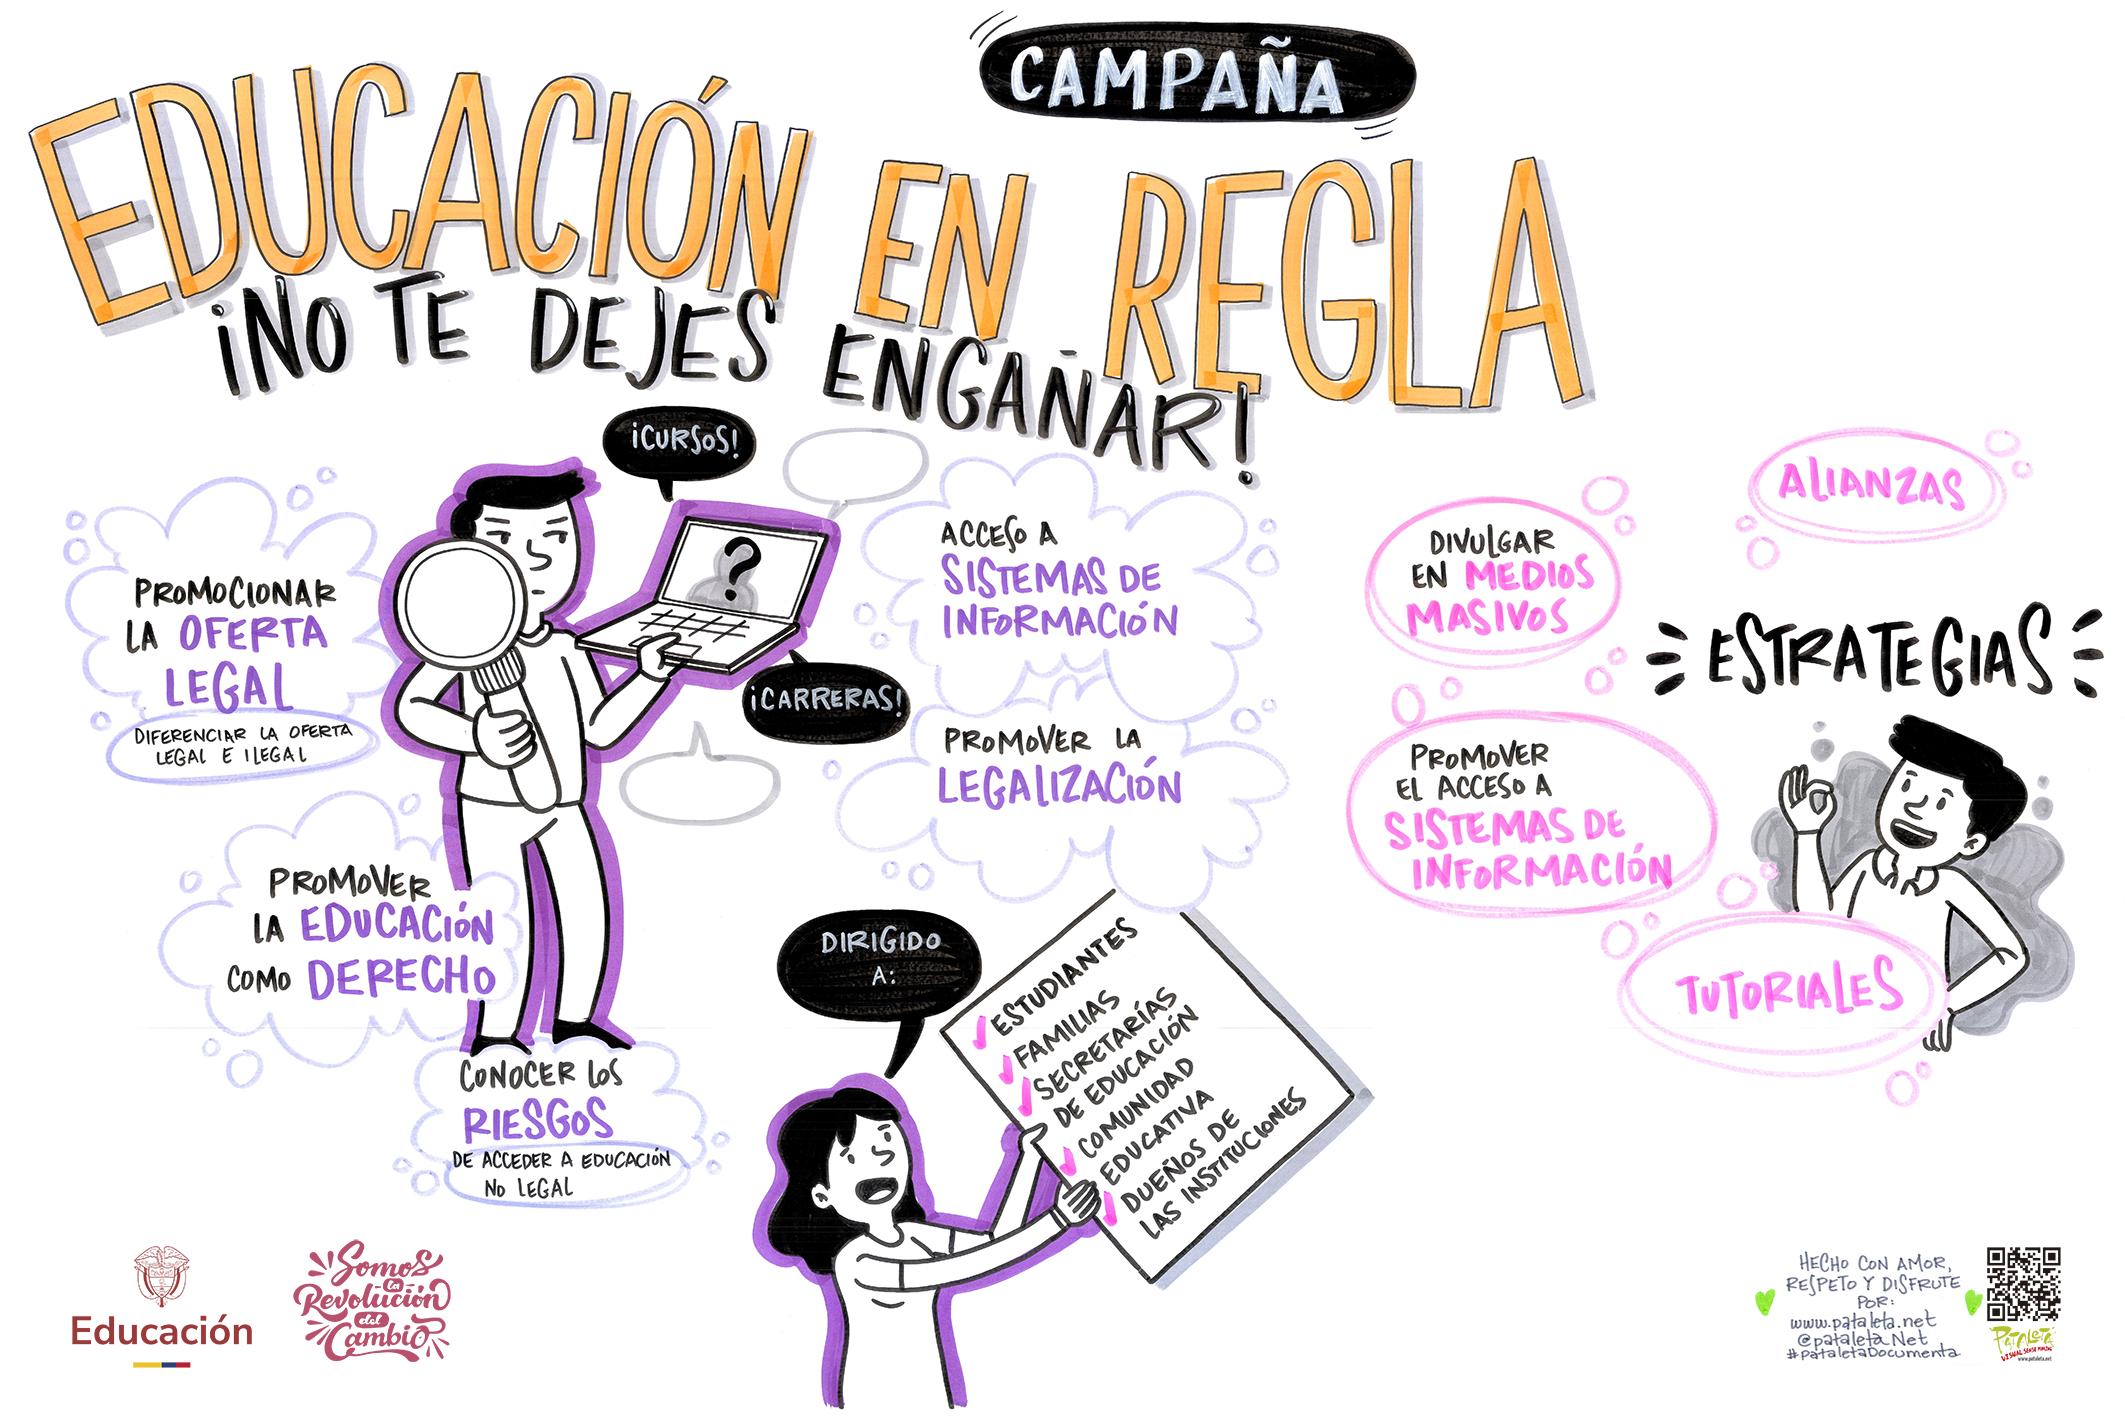 CAMPAÑA
EDUCACIÓN EN REGLA
¡NO TE DEJES ENGAÑAR!
PROMOCIONAR
LA OFERTA
LEGAL
DIFERENCIAR LA OFERTA
LEGAL E ILEGAL
PROMOVER
LA EDUCACIÓN
COMO DERECHO
CONOCER LOS
RIESGOS
DE ACCEDER A EDUCACIÓN
NO LEGAL
¡CURSOS!
?
¡CARRERAS!
ACCESO A
SISTEMAS DE
INFORMACIÓN
PROMOVER LA
LEGALIZACIÓN
DIRIGIDO
A:
ESTUDIANTES
FAMILIAS
SECRETARÍAS
DE EDUCACIÓN
COMUNIDAD
EDUCATIVA
DUEÑOS DE
LAS INSTITUCIONES
ALIANZAS
DIVULGAR
EN MEDIOS
MASIVOS
ESTRATEGIAS
PROMOVER
EL ACCESO A
SISTEMAS DE
INFORMACIÓN
TUTORIALES
Educación
Somos
la
Revolución
del
Cambio
HECHO CON AMOR,
RESPETO Y DISFRUTE
POR:
www.pataleta.net
@pataleta.Net
#pataletaDocumenta
PATALETA
VISUAL SENSE MAKING
www.pataleta.net